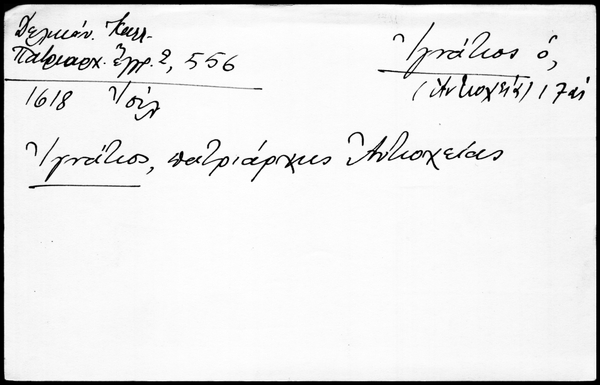 Δελικάν. Καλλ.
Πατριαρχ. Ἔγγρ. 2, 556
1618 Ἰούλ
Ἰγνάτιος ὁ,
(Ἀντιοχεία) 17 αἰ
Ἰγνάτιος, πατριάρχης Ἀντιοχείας